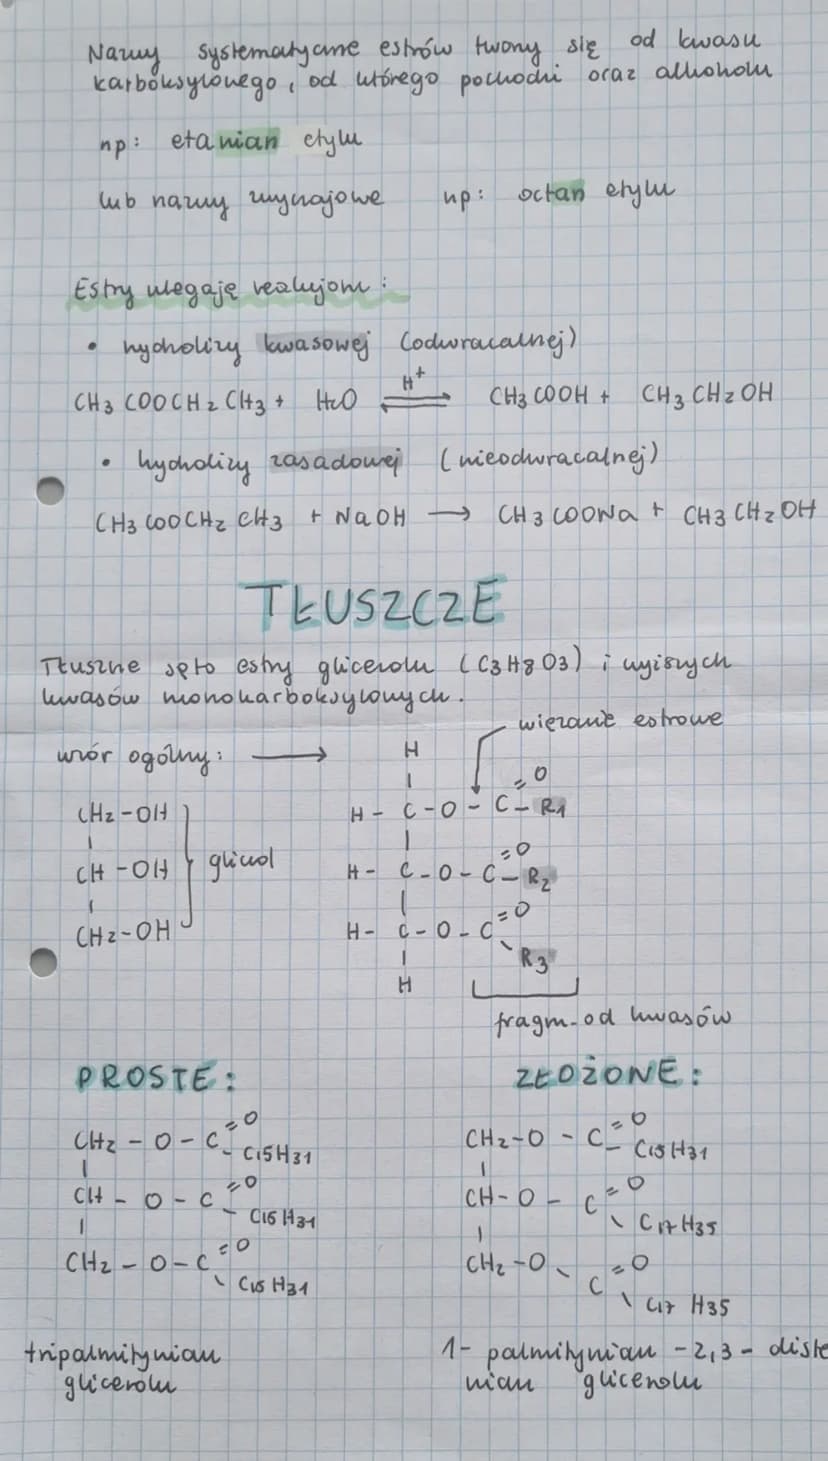 Nazwy systematyczne estrów tworzy się od kwasu
karboksylowego, od którego pochodzi oraz alkoholu
np: etanian etylu
lub nazwy zwyczajowe np: octan etylu
Estry ulegają reakcjom:
• hydrolizy kwasowej (odwracalnej)
CH3COOCH2CH3 + H2O ⇌ CH3COOH + CH3CH2OH
H+
• hydrolizy zasadowej (nieodwracalnej)
CH3COOCH2CH3 + NaOH → CH3COONa + CH3CH2OH
TŁUSZCZE
Tłuszcze są to estry glicerolu (C3H8O3) i wyższych
kwasów monokarboksylowych.
wiązanie estrowe
wzór ogólny: →
CH2-OH
CH-OH
CH2-OH
glicerol
H
H - C - O - C = O - R1
H - C - O - C = O - R2
H - C - O - C = O \ R3
H
fragm. od kwasów
PROSTE:
CH2 - O - C = O - C15H31
CH - O - C = O - C15H31
CH2 - O - C = O \ C15H31
tripalmitynian
glicerolu
ZŁOŻONE:
CH2-O - C = O - C15H31
CH-O - C = O \ C17H35
CH2-O \ C = O \ C17H35
1-palmitynian-2,3-diste
nian glicerolu